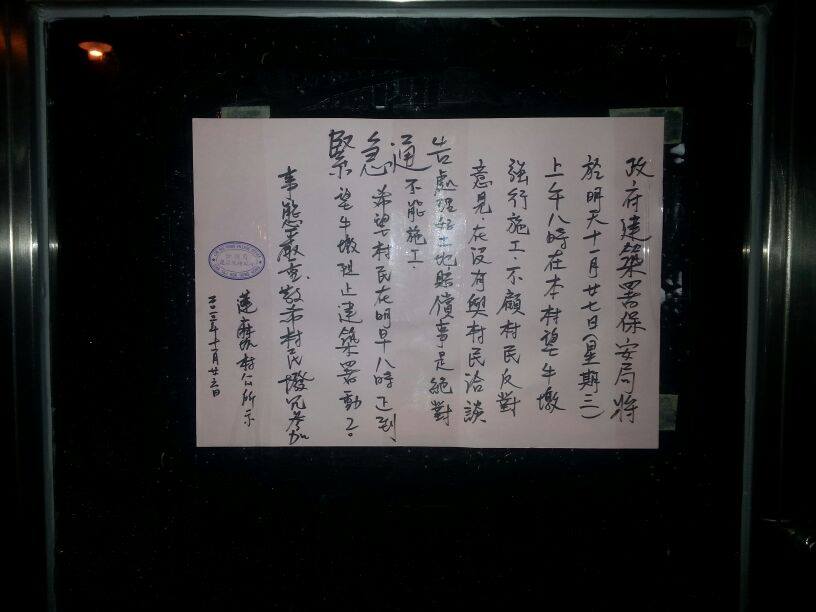 政府建築署保安局將
於明天十一月廿七日(星期三)
上午八時在本村望牛墩
強行施工.不顧村民反對
意見.在沒有與村民洽談
處理好土地賠償事是絕對
不能施工.
緊急通告
希望村民在明早八時正到
望牛墩阻止建築署動工。
事態嚴重.敬希村民撥冗參加
蓮麻坑村公所示
二〇一三年十一月廿六日